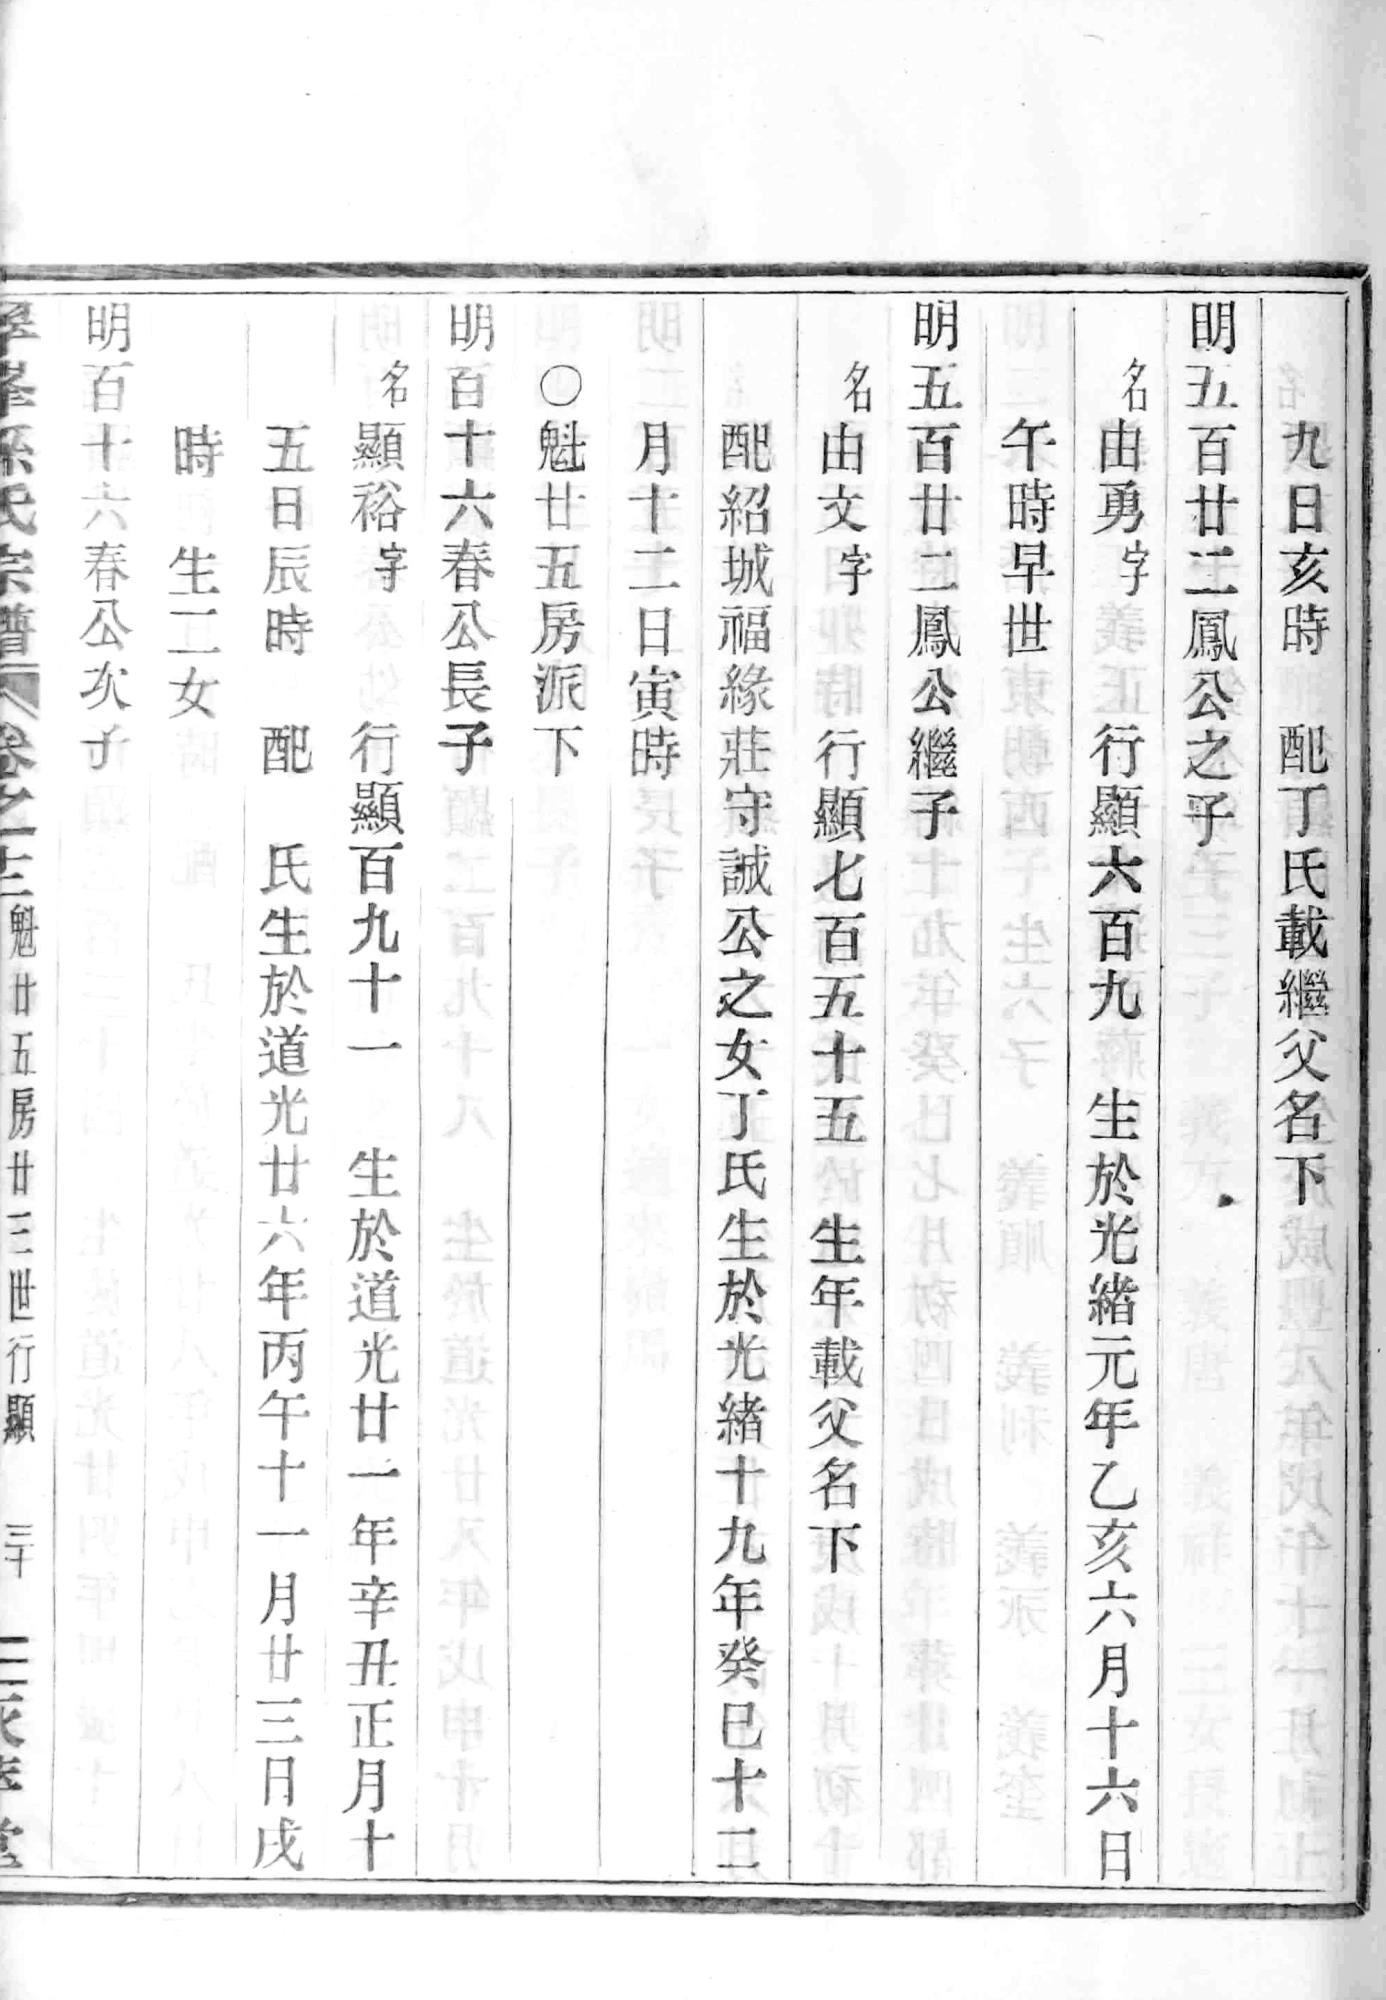 九日亥時　配丁氏載繼父名下
明五百廿二鳳公之子
名由勇字　行顯六百九　生於光緒元年乙亥六月十六日
午時早世
明五百廿二鳳公繼子
名由文字　行顯七百五十五　生年載父名下
配紹城福緣莊守誠公之女丁氏生於光緒十九年癸巳十二
月十二日寅時
○魁廿五房派下
明百十六春公長子
名顯裕字　行顯百九十一　生於道光廿一年辛丑正月十
五日辰時　配　氏生於道光廿六年丙午十一月廿三日戌
時　生二女
明百十六春公次子
孫氏宗譜　卷之十二　魁廿五房廿三世行顯　三十　堂